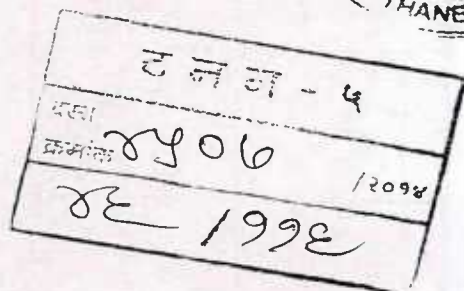 THANE
ट न न - ५
दस्त
क्रमांक ४५०७ /२०१४
४६ /११६